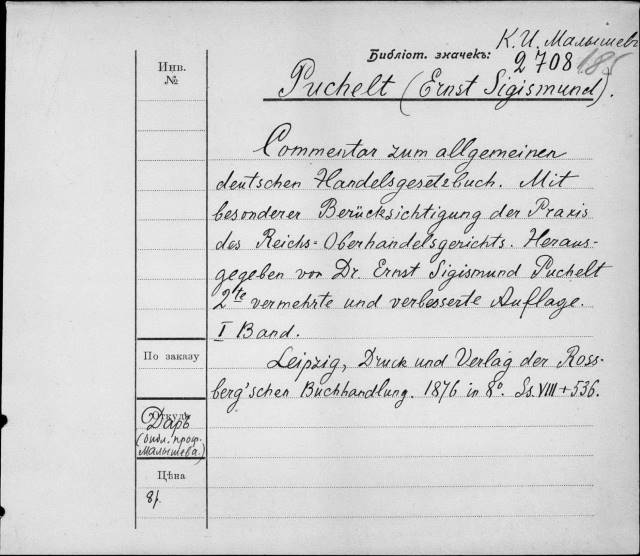 К. И. Малышевъ
Библіот. значекъ: 2708 185
Инв.
№
Puchelt (Ernst Sigismund).
Commentar zum allgemeinen
deutschen Handelsgesetzbuch. Mit
besonderer Berücksichtigung der Praxis
des Reichs=Oberhandelsgerichts. Heraus-
gegeben von Dr. Ernst Sigismund Puchelt
2te vermehrte und verbesserte Auflage.
I Band.
По заказу
Leipzig, Druck und Verlag der Ross-
berg'schen Buchhandlung. 1876 in 8°. Ss. VIII + 536.
Откуда
Даръ
(библ. проф.
Малышева)
Цѣна
8р.